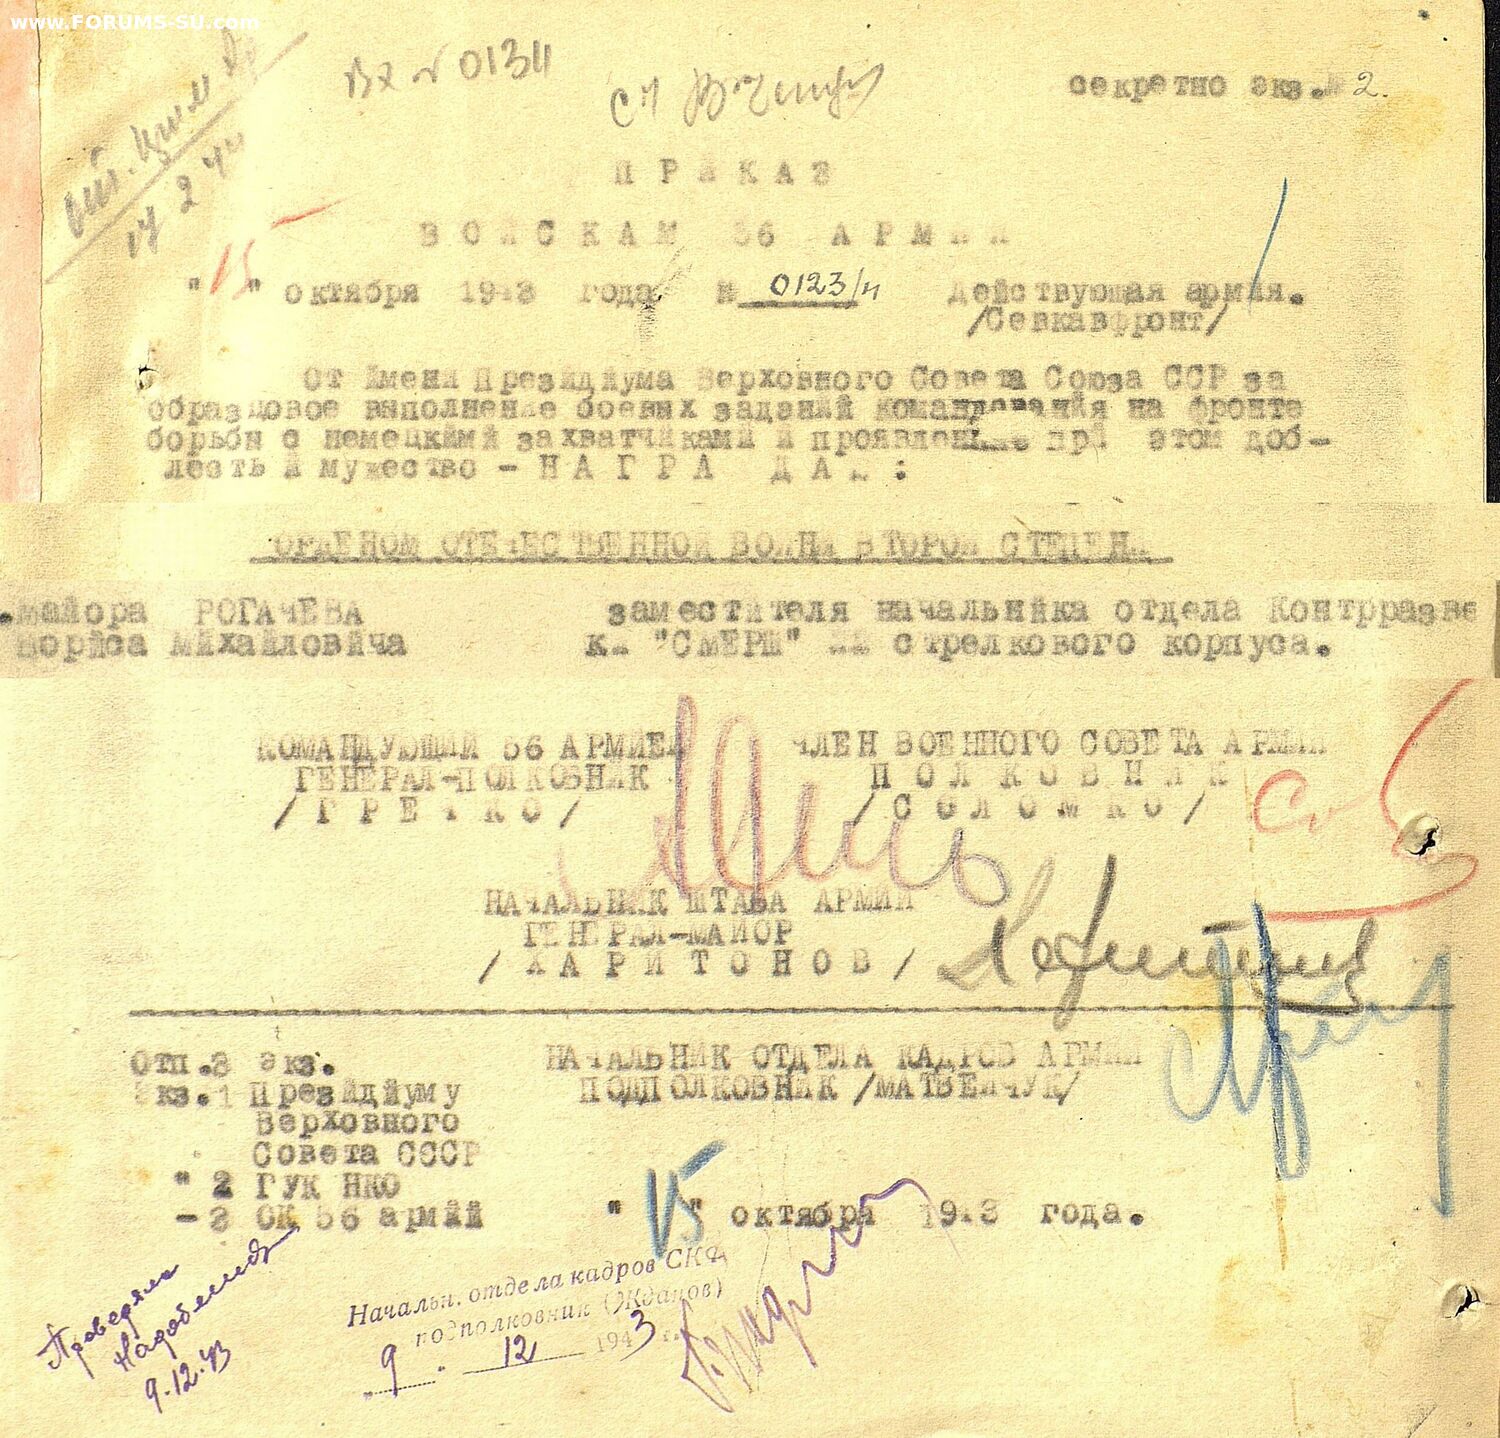 www.FORUMS-SU.com
Вх № 0134
секретно экз.№ 2.
17 2 44
ПРИКАЗ
ВОЙСКАМ 56 АРМИИ
"15" октября 1943 года № 0123/н Действующая армия.
/Севкавфронт/
От имени Президиума Верховного Совета Союза ССР за
образцовое выполнение боевых заданий командования на фронте
борьбы с немецкими захватчиками и проявленные при этом доб-
лесть и мужество - НАГРАЖДАЮ:
ОРДЕНОМ ОТЕЧЕСТВЕННОЙ ВОЙНЫ ВТОРОЙ СТЕПЕНИ
майора РОГАЧЕВА заместителя начальника отдела Контрразве
Бориса Михайловича ки "СМЕРШ" стрелкового корпуса.
КОМАНДУЮЩИЙ 56 АРМИЕЙ ЧЛЕН ВОЕННОГО СОВЕТА АРМИИ
ГЕНЕРАЛ-ПОЛКОВНИК ПОЛКОВНИК
/ГРЕЧКО/ /СОЛОМКО/
НАЧАЛЬНИК ШТАБА АРМИИ
ГЕНЕРАЛ-МАЙОР
/ХАРИТОНОВ/
Отп.3 экз. НАЧАЛЬНИК ОТДЕЛА КАДРОВ АРМИИ
Экз.1 Президиуму ПОДПОЛКОВНИК /МАТВЕЙЧУК/
Верховного
Совета СССР
" 2 ГУК НКО
-3 ОК 56 армии "15" октября 1943 года.
Начальн. отдела кадров СКФ
подполковник (Жданов)
„9" 12 1943 г.
Проверяла
9.12.43